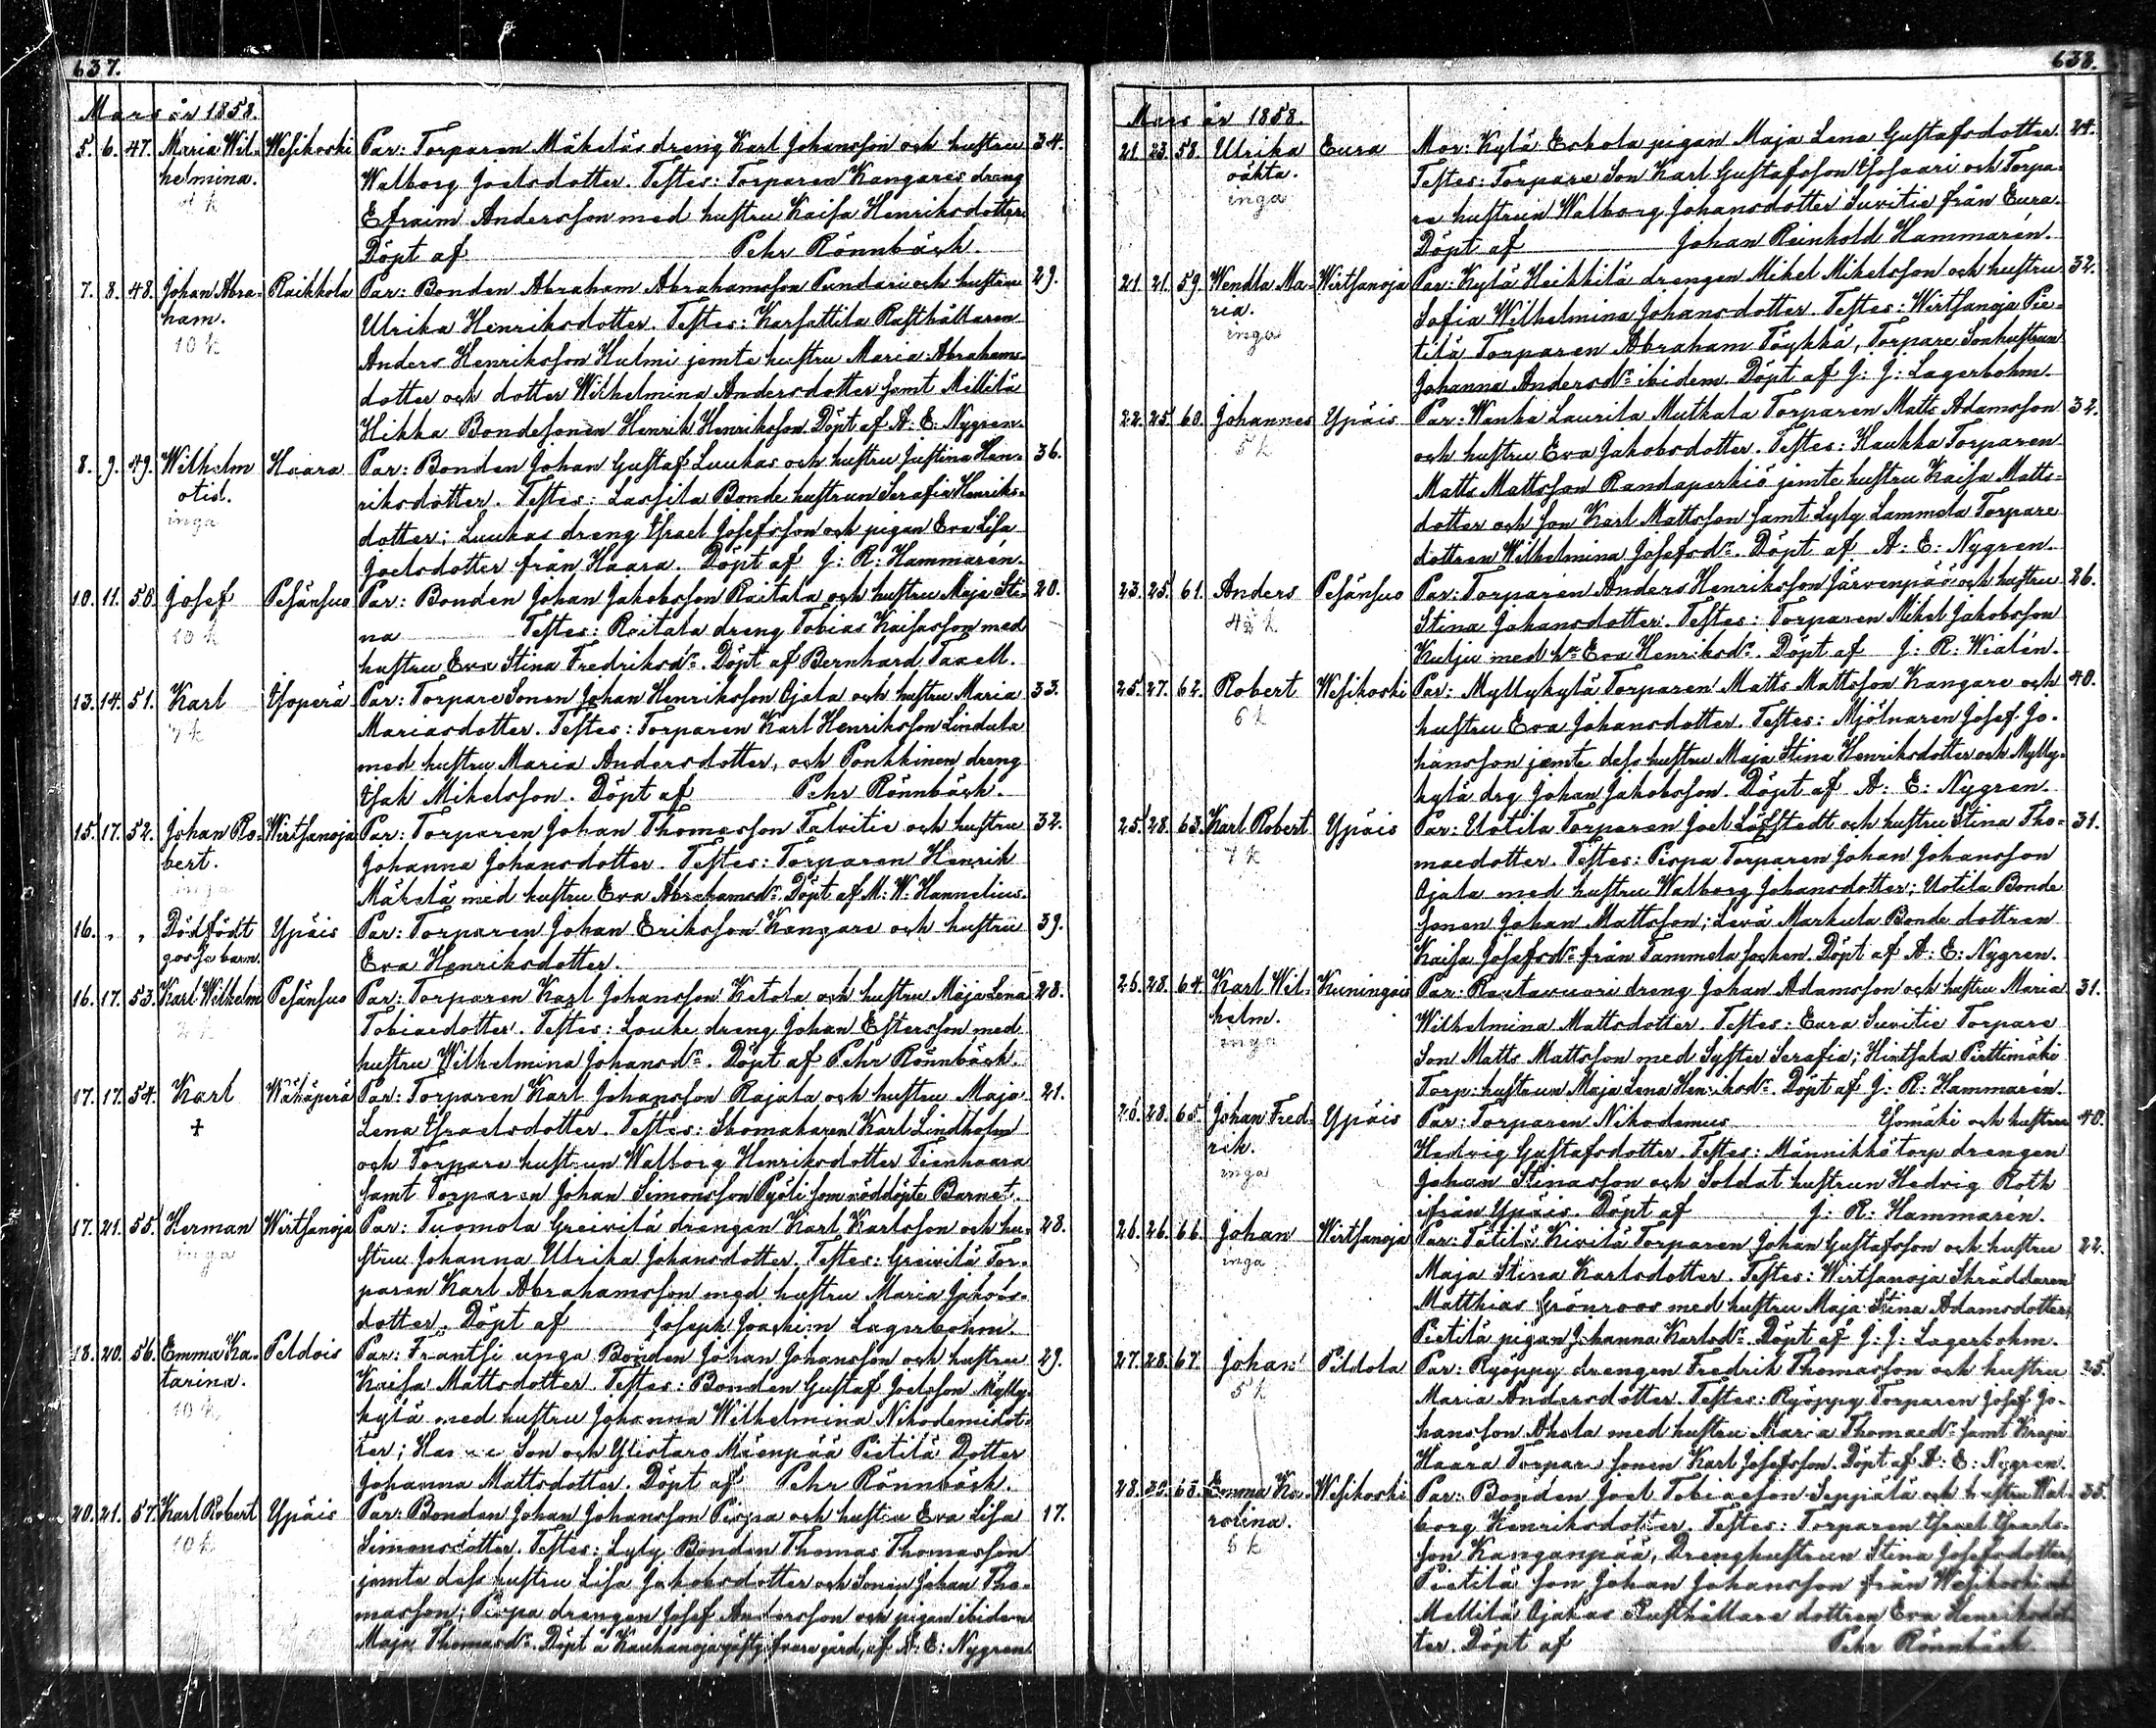 637.
Mars år 1858.
5. 6. 47. Maria Wil- Wesikoski Par: Torparen Mäkeläs dreng Karl Johansson och hustru 34.
helmina. Walborg Joelsdotter. Testes: Torparen Kangares dreng
4 k Efraim Andersson med hustru Kaisa Henriksdotter.
Döpt af Pehr Rönnbäck.
7. 8. 48. Johan Abra- Raikkola Par: Bonden Abraham Abrahamsson Pundari och hustru 29.
ham. Ulrika Henriksdotter. Testes: Karsattila Rusthållaren
10 k Anders Henriksson Hulmi jemte hustru Maria Abrahams-
dotter och dotter Wilhelmina Andersdotter samt Millilä
Hikka Bondesonen Henrik Henriksson. Döpt af A: E: Nygren.
8. 9. 49. Wilhelm Haara Par: Bonden Johan Gustaf Luukas och hustru Justina Hen- 36.
otid. riksdotter. Testes: Lassila Bonde hustrun Serafia Henriks-
inga dotter; Luukas dreng Israel Josefsson och pigan Eva Lisa
Joelsdotter från Haara. Döpt af J: R: Hammarén.
10. 11. 50. Josef Pesänsuo Par: Bonden Johan Jakobsson Raitala och hustru Maja Sti- 20.
10 k na Testes: Raitala dreng Tobias Kaisasson med
hustru Eva Stina Fredriksdr. Döpt af Bernhard Taxell.
13. 14. 51. Karl Isoperä Par: Torpare Sonen Johan Henriksson Ojala och hustru Maria 33.
7 k Mariasdotter. Testes: Torparen Karl Henriksson Lindula
med hustru Maria Andersdotter, och Ponkkinen dreng
Isak Mikelsson. Döpt af Pehr Rönnbäck.
15. 17. 52. Johan Ro- Wirtsanoja Par: Torparen Johan Thomasson Talvitie och hustru 32.
bert. Johanna Johansdotter. Testes: Torparen Henrik
inga Mäkelä med hustru Eva Abrahamsdr. Döpt af M: W: Hannelius.
16. " " Dödfödt Ypäis Par: Torparen Johan Eriksson Kangare och hustru 39.
gosse barn. Eva Henriksdotter.
16. 17. 53. Karl Wilhelm Pesänsuo Par: Torparen Karl Johansson Ketola och hustru Maja Lena 28.
2 k Tobiaedotter. Testes: Louke dreng Johan Estersson med
hustru Wilhelmina Johansdr. Döpt af Pehr Rönnbäck.
17. 17. 54. Karl Wähäperä Par: Torparen Karl Johansson Rajala och hustru Maja 21.
+ Lena Israelsdotter. Testes: Skomakaren Karl Lindholm
och Torpare hustrun Walborg Henriksdotter Tienhaara
samt Torparen Johan Simonsson Pyöli som nöddöpte Barnet.
17. 21. 55. Herman Wirtsanoja Par: Tuomola Greivilä drengen Karl Karlsson och hu- 28.
inga stru Johanna Ulrika Johansdotter. Testes: Greivilä Tor-
paren Karl Abrahamsson med hustru Maria Jakobs-
dotter. Döpt af Joseph Joachim Lagerbohm.
18. 20. 56. Emma Ka- Peldois Par: Frantsi unga Bonden Johan Johansson och hustru 29.
tarina. Kaisa Mattsdotter. Testes: Bonden Gustaf Joelsson Mylly-
10 k kylä med hustru Johanna Wilhelmina Nikodemidot-
ter; Son och Ylistaro Mäenpää Pietilä Dotter
Johanna Mattsdotter. Döpt af Pehr Rönnbäck.
20. 21. 57. Karl Robert Ypäis Par: Bonden Johan Johansson Pispa och hustru Eva Lisa 17.
10 k Simonsdotter. Testes: Lyly Bonden Thomas Thomasson
jemte dess hustru Lisa Jakobsdotter och Sonen Johan Tho-
masson; Pispa drengen Josef Andersson och pigan ibidem
Maja Thomasdr. Döpt å Kauhanoja gästgifvare gård, af A: E: Nygren
638.
Mars år 1858.
21 23 58 Ulrika Eura Mor: Kylä Eskola pigan Maja Lena Gustafsdotter 24.
oäkta. Testes: Torpare Son Karl Gustafsson Isosaari och Torpa-
inga re hustrun Walborg Johansdotter Suvitie från Eura.
Döpt af Johan Reinhold Hammarén.
21 21. 59. Wendla Ma- Wirtsanoja Par: Kylä Heikkilä drengen Mikel Mikelsson och hustru 32.
ria. Sofia Wilhelmina Johansdotter. Testes: Wirtsanoja Pie-
inga tilä Torparen Abraham Töykkä, Torpare Sonhustrun
Johanna Andersdr ibidem. Döpt af J: J: Lagerbohm.
22. 25. 60. Johannes Ypäis Par: Wanha Laurila Muthala Torparen Matts Adamsson 32.
5 k och hustru Eva Jakobsdotter. Testes: Haukka Torparen
Matts Mattsson Randaperkiö jemte hustru Kaisa Matts-
dotter och son Karl Mattsson samt Lyly Lammela Torpare
dottren Wilhelmina Josefsdr. Döpt af A: E: Nygren.
23. 25. 61. Anders Pesänsuo Par: Torparen Anders Henriksson Järvenpää och hustru 26.
4½ k Stina Johansdotter. Testes: Torparen Mikel Jakobsson
Kulju med hu Eva Henriksdr. Döpt af J: R: Wialén.
25. 27. 62. Robert Wesikoski Par: Myllykylä Torparen Matts Mattsson Kangare och 40.
6 k hustru Eva Johansdotter. Testes: Mjölnaren Josef Jo-
hansson jemte dess hustru Maja Stina Henriksdotter och Mylly-
kylä drg Johan Jakobsson. Döpt af A: E: Nygren.
25. 28. 63. Karl Robert Ypäis Par: Uotila Torparen Joel Löfstedt och hustru Stina Tho- 31.
7 k maedotter. Testes: Pispa Torparen Johan Johansson
Ojala med hustru Walborg Johansdotter; Uotila Bonde
Sonen Johan Mattsson; Levä Markula Bonde dottren
Kaisa Josefsdr från Tammela socken. Döpt af A: E: Nygren.
26. 28. 64. Karl Wil- Kuningois Par: Rautavuori dreng Johan Adamsson och hustru Maria 31.
helm. Wilhelmina Mattsdotter. Testes: Eura Suvitie Torpare
inga Son Matts Mattsson med Syster Serafia; Hintsala Pirttimäki
Torp: hustrun Maja Lena Henriksdr. Döpt af J: R: Hammarén.
26. 28. 65. Johan Fred- Ypäis Par: Torparen Nikodemus Isomäki och hustru 40.
rik. Hedvig Gustafsdotter. Testes: Männikkö torp drengen
inga Johan Stinasson och Soldat hustrun Hedvig Roth
ifrån Ypäis. Döpt af J: R: Hammarén.
26. 26. 66. Johan Wirtsanoja Par: Tätilä Kivilä Torparen Johan Gustafsson och hustru 22.
inga Maja Stina Karlsdotter. Testes: Wirtsanoja Skräddaren
Matthias Grönroos med hustru Maja Stina Adamsdotter;
Pietilä pigan Johanna Karlsdr. Döpt af J: J: Lagerbohm.
27. 28. 67. Johan Peldola Par: Ryöppy drengen Fredrik Thomasson och hustru 25.
5 k Maria Andersdotter. Testes: Ryöppy Torparen Josef Jo-
hansson Ahola med hustru Maria Thomaedr samt Krapi
Haara Torpare sonen Karl Josefsson. Döpt af A: E: Nygren.
28. 30. 68. Emma Ka- Wesikoski Par: Bonden Joel Tobiaeson Seppälä och hustru Wal- 35.
rolina. borg Henriksdotter. Testes: Torparen Israel Israels-
5 k son Kanganpää, Drenghustrun Stina Josefsdotter,
Pietilä son Johan Johansson från Wesikoski
Mellilä Ojakas Rusthållare dottren Eva Henriksdot-
ter. Döpt af Pehr Rönnbäck